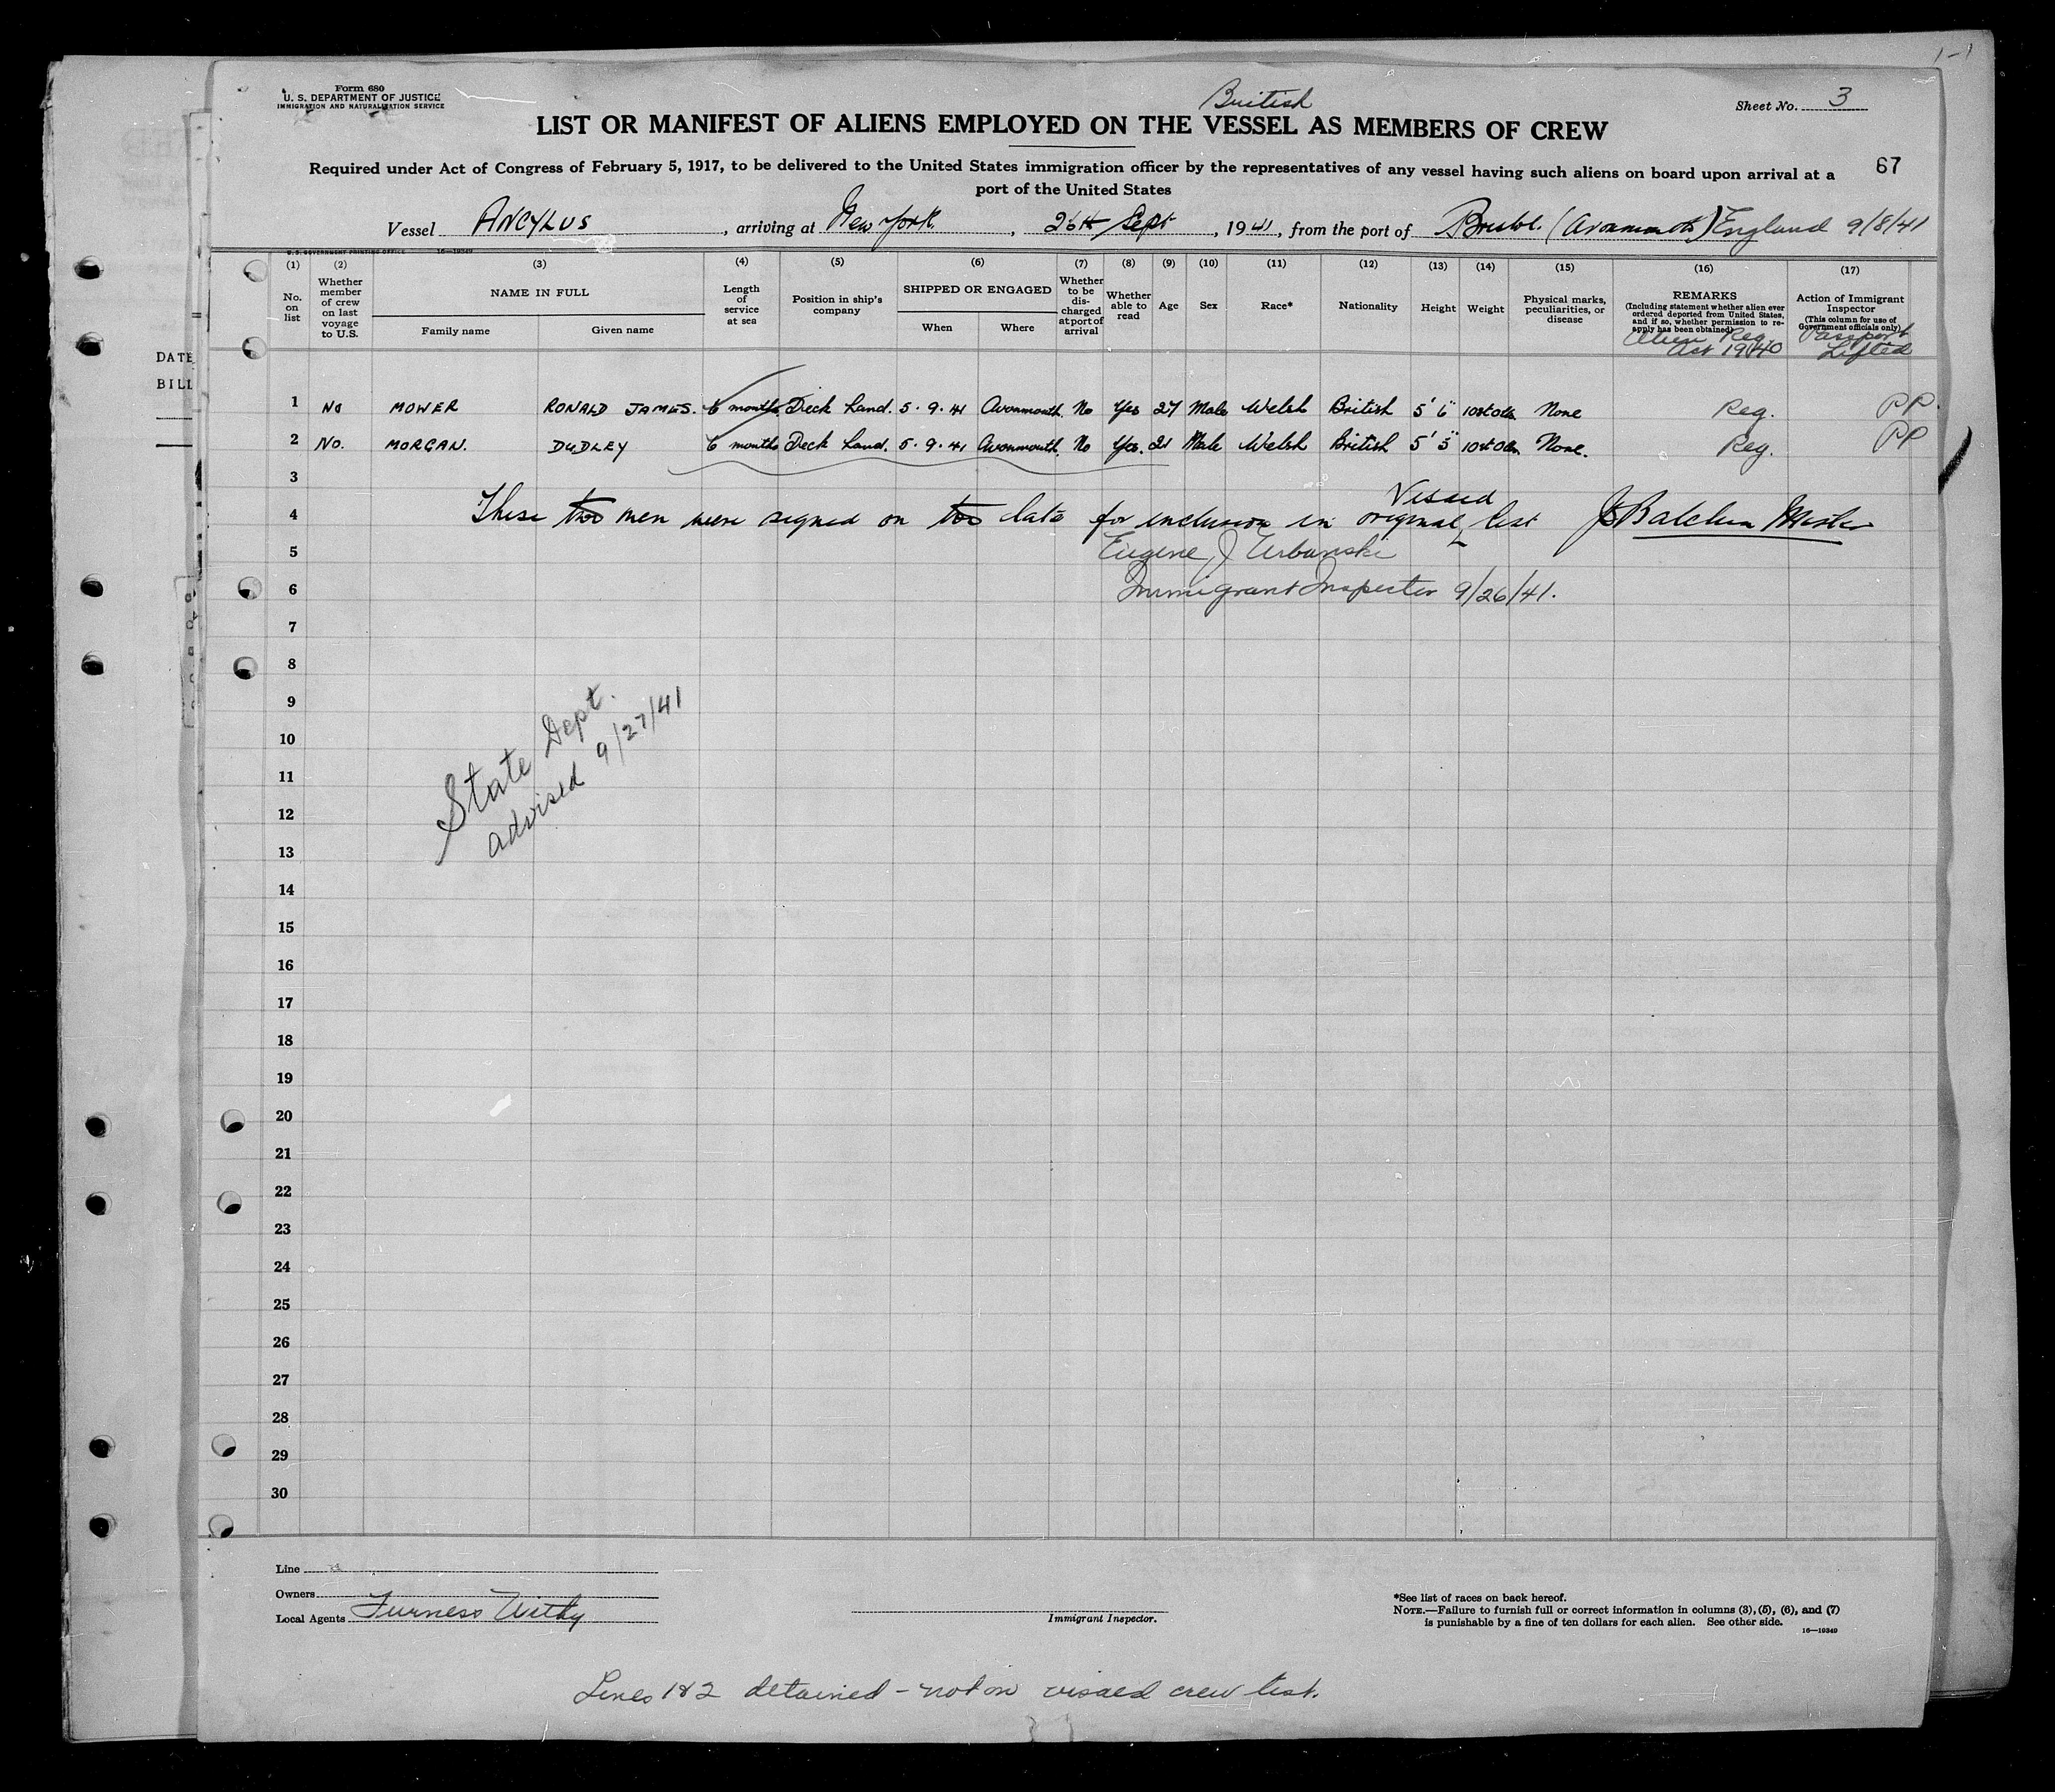 1-1
Form 680
U. S. DEPARTMENT OF JUSTICE
IMMIGRATION AND NATURALIZATION SERVICE
British
Sheet No. 3
LIST OR MANIFEST OF ALIENS EMPLOYED ON THE VESSEL AS MEMBERS OF CREW
67
Required under Act of Congress of February 5, 1917, to be delivered to the United States immigration officer by the representatives of any vessel having such aliens on board upon arrival at a
port of the United States
Vessel ANCYLUS, arriving at New York, 26th Sept, 1941, from the port of Bristol (Avonmouth) England 9/8/41
U. S. GOVERNMENT PRINTING OFFICE 16—19349
(1) (2) (3) (4) (5) (6) (7) (8) (9) (10) (11) (12) (13) (14) (15) (16) (17)
No. on list
Whether member of crew on last voyage to U.S.
NAME IN FULL
Family name
Given name
Length of service at sea
Position in ship's company
SHIPPED OR ENGAGED
When
Where
Whether to be discharged at port of arrival
Whether able to read
Age
Sex
Race*
Nationality
Height
Weight
Physical marks, peculiarities, or disease
REMARKS
(Including statement whether alien ever ordered deported from United States, and if so, whether permission to reapply has been obtained)
Alien Reg
Act 1940
Action of Immigrant Inspector
(This column for use of Government officials only)
Passport
Lifted
1 No MOWER RONALD JAMES. 6 months Deck hand. 5.9.41 Avonmouth No Yes 27 Male Welsh British 5' 6" 10st 0lb None Reg. PP.
2 No. MORGAN. DUDLEY 6 months Deck hand. 5.9.41 Avonmouth. No Yes. 21 Male Welsh British 5' 5" 10st 0lb None. Reg. PP
3
Visaed
4 These two men were signed on too late for inclusion in original list Balchin Master
5 Eugene J Urbanski
6 Immigrant Inspector 9/26/41.
7
8
9
10
State Dept.
advised 9/27/41
11
12
13
14
15
16
17
18
19
20
21
22
23
24
25
26
27
28
29
30
DATE
BILL
Line
Owners
Local Agents Furness Withy
Immigrant Inspector.
*See list of races on back hereof.
NOTE.—Failure to furnish full or correct information in columns (3), (5), (6), and (7)
is punishable by a fine of ten dollars for each alien. See other side.
16—19349
Lines 1 & 2 detained - not on visaed crew list.